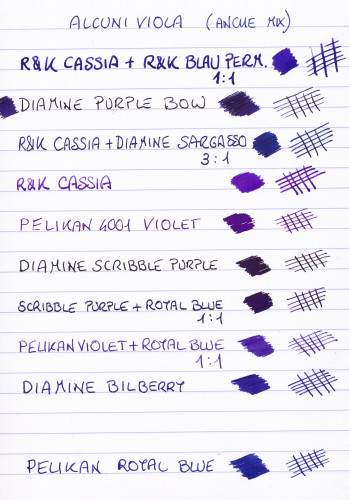 ALCUNI VIOLA (ANCHE MIX)
R&K CASSIA + R&K BLAU PERM.
1:1
DIAMINE PURPLE BOW
R&K CASSIA + DIAMINE SARGASSO
3:1
R&K CASSIA
PELIKAN 4001 VIOLET
DIAMINE SCRIBBLE PURPLE
SCRIBBLE PURPLE + ROYAL BLUE
1:1
PELIKAN VIOLET + ROYAL BLUE
1:1
DIAMINE BILBERRY
PELIKAN ROYAL BLUE